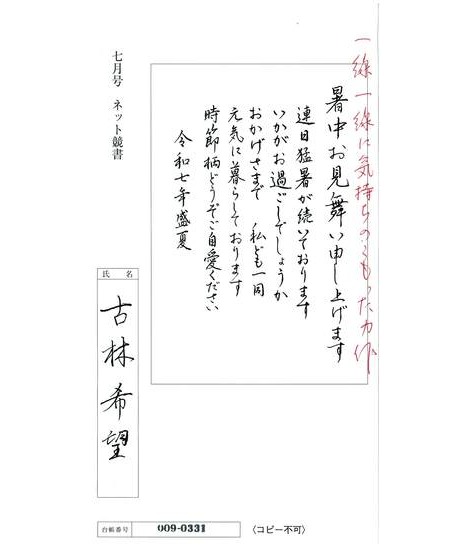 一線一線に気持ちのこもった力作
暑中お見舞い申し上げます
連日猛暑が続いております
いかがお過ごしでしょうか
おかげさまで 私ども一同
元気に暮らしております
時節柄どうぞご自愛ください
令和七年盛夏
七月号 ネット競書
氏名
古林希望
台帳番号 009-0331
〈コピー不可〉